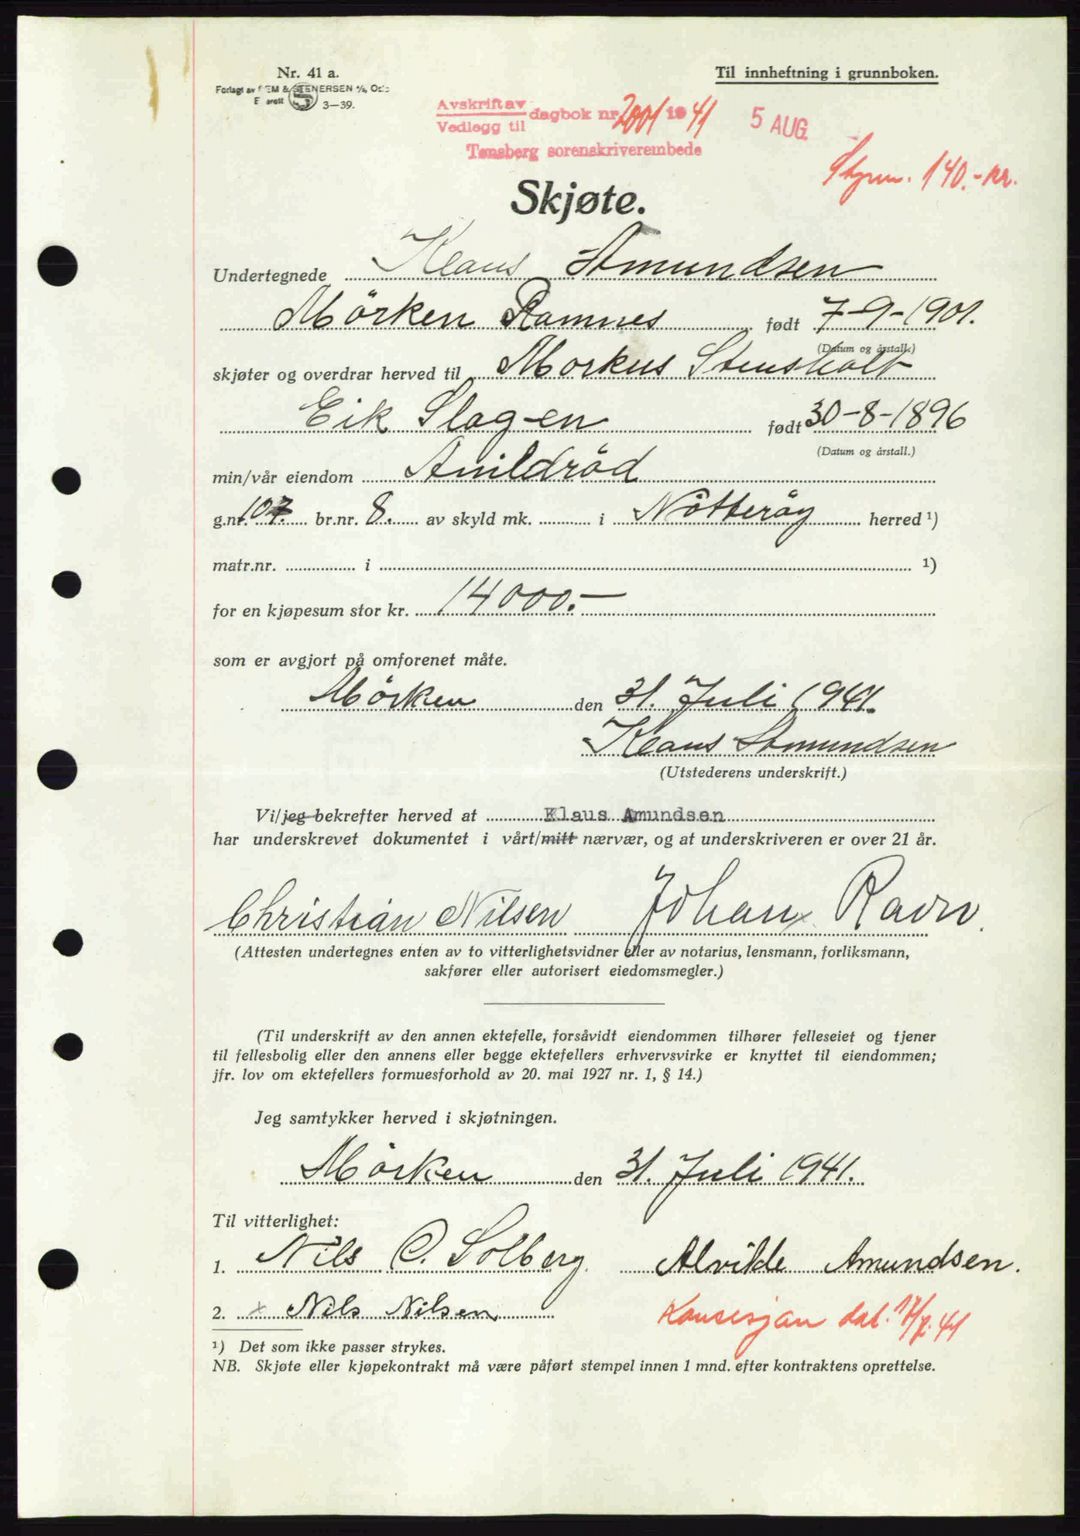 Nr. 41 a.
Til innheftning i grunnboken.
Forlagt av SEM & STENERSEN A/S, Oslo
3—39.
Avskrift av dagbok nr 2001 1941
Vedlegg til
5 AUG.
Tønsberg sorenskriverembede
140.- kr.
Skjøte.
Undertegnede Klaus Amundsen
Mörken Ramnes født 7-9-1901.
(Datum og årstall.)
skjøter og overdrar herved til Markus Stensholt
Eik Slagen født 30-8-1896
(Datum og årstall.)
min/vår eiendom
g.nr. 107. br.nr. 8. av skyld mk. i Nötteröy herred ¹)
matr.nr. i ¹)
for en kjøpesum stor kr. 14000.-
som er avgjort på omforenet måte.
Mörken den 31. Juli 1941.
Klaus Amundsen
(Utstederens underskrift.)
Vi/jeg bekrefter herved at Klaus Amundsen
har underskrevet dokumentet i vårt/mitt nærvær, og at underskriveren er over 21 år.
Christian Nilsen Johan Ravn.
(Attesten undertegnes enten av to vitterlighetsvidner eller av notarius, lensmann, forliksmann,
sakfører eller autorisert eiedomsmegler.)
(Til underskrift av den annen ektefelle, forsåvidt eiendommen tilhører felleseiet og tjener
til fellesbolig eller den annens eller begge ektefellers erhvervsvirke er knyttet til eiendommen;
jfr. lov om ektefellers formuesforhold av 20. mai 1927 nr. 1, § 14.)
Jeg samtykker herved i skjøtningen.
Mörken den 31. Juli 1941.
Til vitterlighet:
1. Nils O. Solberg Alvilde Amundsen.
2. x Nils Nilsen
Konsesjon dat. 17/7.41
¹) Det som ikke passer strykes.
NB. Skjøte eller kjøpekontrakt må være påført stempel innen 1 mnd. efter kontraktens oprettelse.